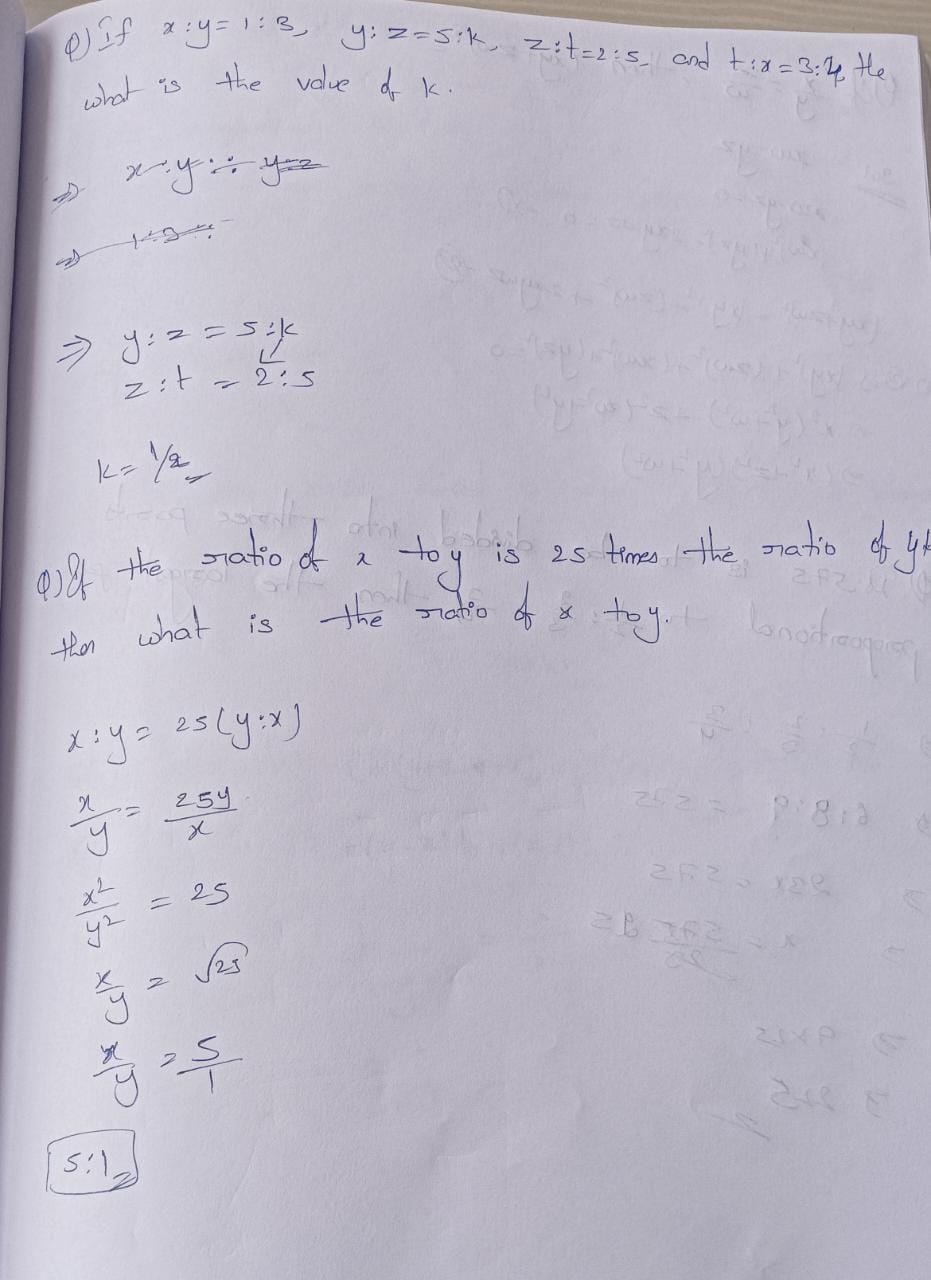 Q) If x:y = 1:3, y:z = 5:k, z:t = 2:5 and t:x = 3:4, the
what is the value of k.
⇒ x:y :: y=z
⇒ 1:3::
⇒ y:z = 5:k
z:t = 2:5
k = 1/2
Q) If the ratio of x to y is 25 times the ratio of y t
then what is the ratio of x to y.
x:y = 25(y:x)
x/y = 25y/x
x²/y² = 25
x/y = √25
x/y = 5/1
5:1